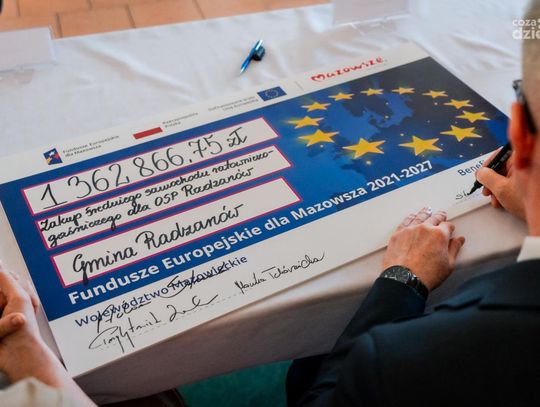 coza
dzie
Mazowsze.
Fundusze Europejskie
dla Mazowsza
Rzeczpospolita
Polska
1 362 866,75 zł
Zakup średniego samochodu ratowniczo-
gaśniczego dla OSP Radzanów
Gmina Radzanów
Fundusze Europejskie dla Mazowsza 2021-2027
Województwo Mazowieckie
Benef